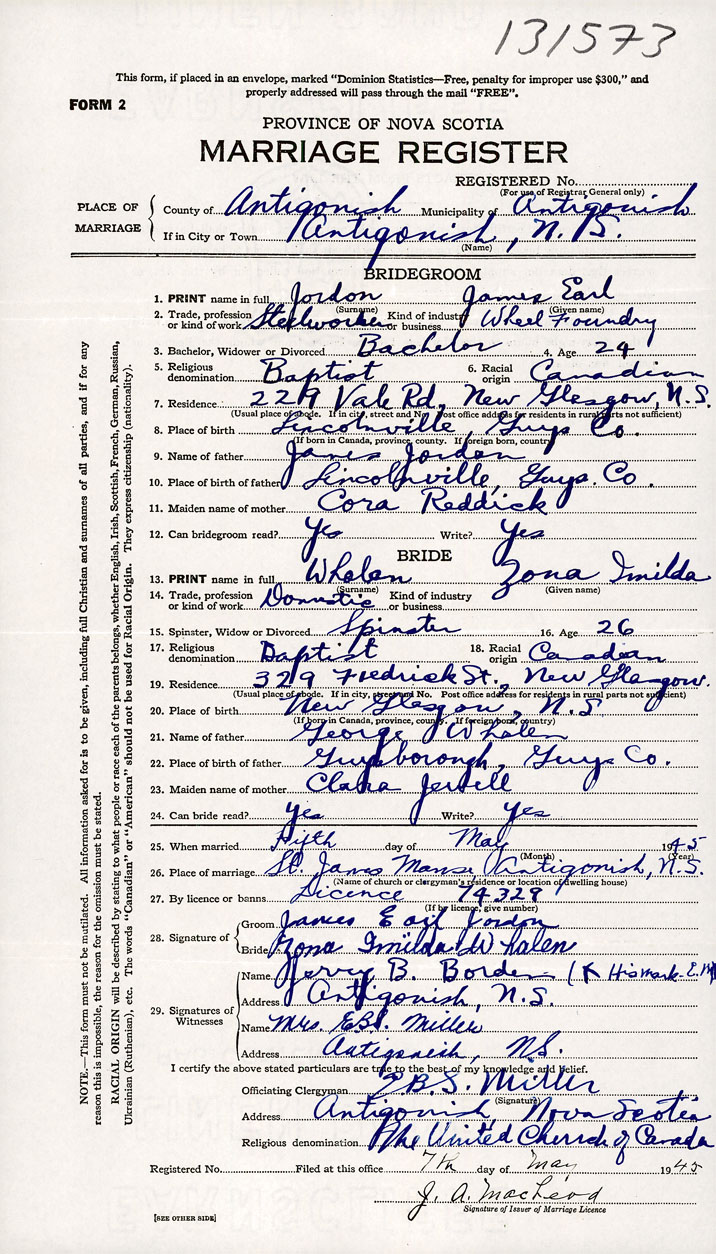 131573
This form, if placed in an envelope, marked "Dominion Statistics—Free, penalty for improper use $300," and
properly addressed will pass through the mail "FREE".
FORM 2
PROVINCE OF NOVA SCOTIA
MARRIAGE REGISTER
REGISTERED No.
(For use of Registrar General only)
PLACE OF MARRIAGE
County of Antigonish Municipality of Antigonish
If in City or Town Antigonish, N.S.
(Name)
BRIDEGROOM
1. PRINT name in full Jordon James Earl
(Surname) (Given name)
2. Trade, profession or kind of work Steelworker Kind of industry or business Wheel Foundry
3. Bachelor, Widower or Divorced Bachelor 4. Age 24
5. Religious denomination Baptist 6. Racial origin Canadian
7. Residence 229 Vale Rd, New Glasgow, N.S.
(Usual place of abode. If in city, street and No. Post office address for residents in rural parts not sufficient)
8. Place of birth Lincolnville, Guys Co.
(If born in Canada, province, county. If foreign born, country)
9. Name of father James Jordon
10. Place of birth of father Lincolnville, Guys. Co.
11. Maiden name of mother Cora Reddick
12. Can bridegroom read? Yes Write? Yes
BRIDE
13. PRINT name in full Whalen Zona Imilda
(Surname) (Given name)
14. Trade, profession or kind of work Domestic Kind of industry or business
15. Spinster, Widow or Divorced Spinster 16. Age 26
17. Religious denomination Baptist 18. Racial origin Canadian
19. Residence 329 Fredrick St., New Glasgow.
(Usual place of abode. If in city, street and No. Post office address for residents in rural parts not sufficient)
20. Place of birth New Glasgow, N.S
(If born in Canada, province, county. If foreign born, country)
21. Name of father George Whalen
22. Place of birth of father Guysborough, Guys Co.
23. Maiden name of mother Clara Jewell
24. Can bride read? Yes Write? Yes
25. When married Fifth day of May 1945
(Month) (Year)
26. Place of marriage St. James Manse, Antigonish, N.S.
(Name of church or clergyman's residence or location of dwelling house)
27. By licence or banns Licence 74328
(If by licence, give number)
28. Signature of
Groom James Earl Jordon
Bride Zona Imilda Whalen
29. Signatures of Witnesses
Name Jerry B. Borden (X His mark
Address Antigonish, N.S.
Name Mrs. E.B.S. Miller
Address Antigonish, N.S.
I certify the above stated particulars are true to the best of my knowledge and belief.
Officiating Clergyman E.B.S. Miller
(Signature)
Address Antigonish, Nova Scotia
Religious denomination The United Church of Canada
Registered No. Filed at this office 7th day of May 1945
J. A. MacLeod
Signature of Issuer of Marriage Licence
[SEE OTHER SIDE]
NOTE.—This form must not be mutilated. All information asked for is to be given, including full Christian and surnames of all parties, and if for any
reason this is impossible, the reason for the omission must be stated.
RACIAL ORIGIN will be described by stating to what people or race each of the parents belongs, whether English, Irish, Scottish, French, German, Russian,
Ukrainian (Ruthenian), etc. The words "Canadian" or "American" should not be used for Racial Origin. They express citizenship (nationality).